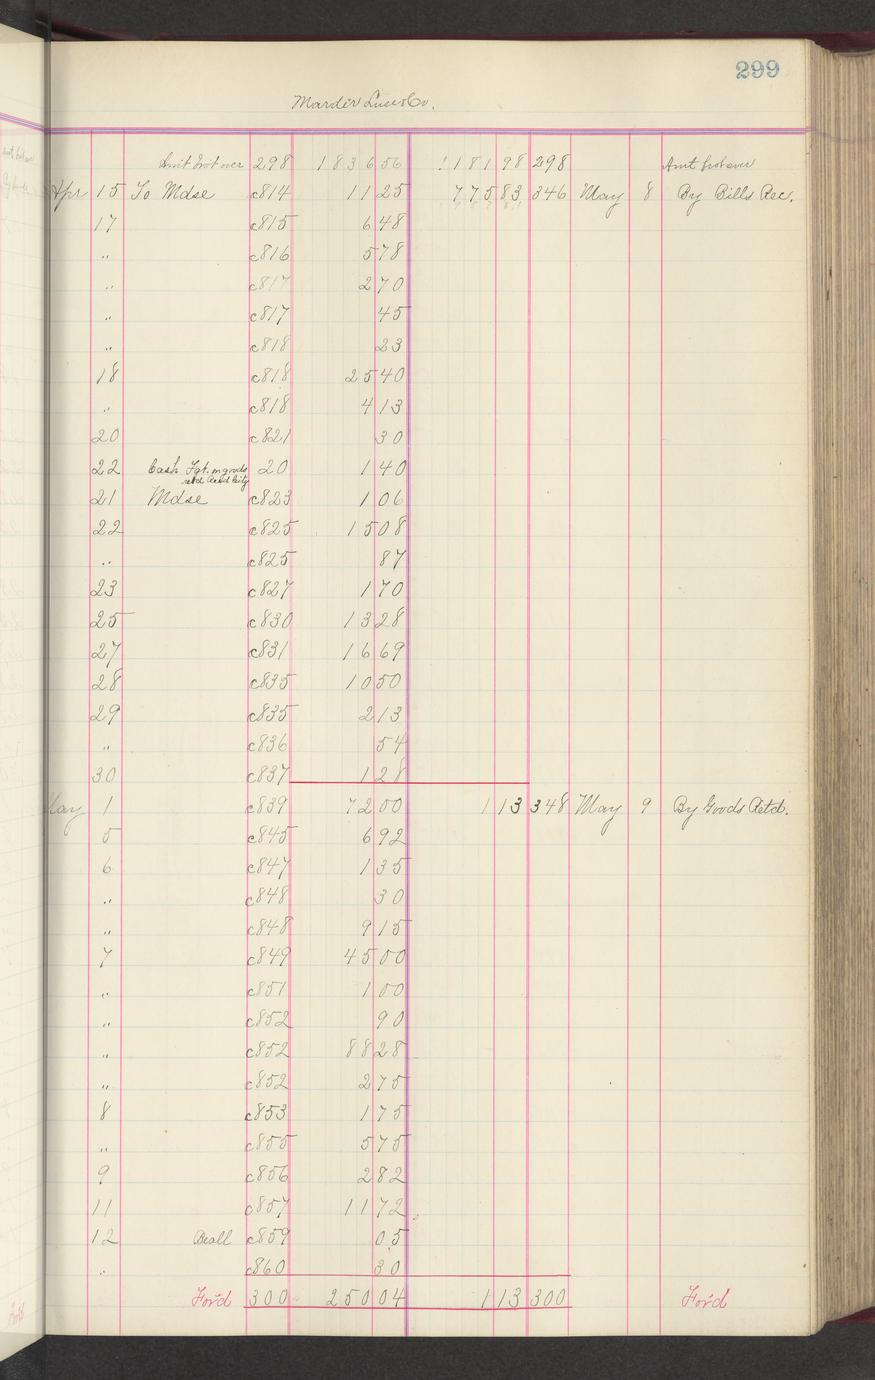 299
Marder Luse & Co.
Amt brot over 298 1836 56 1181 98 298 Amt brot over
Apr 15 To Mdse c814 11 25 775 83 346 May 8 By Bills Rec.
17 c815 6 48
" c816 5 78
" c817 2 70
" c817 45
" c818 23
18 c818 25 40
" c818 4 13
20 c821 30
22 Cash Fgt. on goods 20 1 40
retd
21 Mdse c823 1 06
22 c825 15 08
" c825 87
23 c827 1 70
25 c830 13 28
27 c831 16 69
28 c835 10 50
29 c835 2 13
" c836 54
30 c837 1 28
May 1 c839 72 00 1 13 348 May 9 By Goods Retd.
5 c845 6 92
6 c847 1 35
" c848 30
" c848 9 15
7 c849 45 00
" c851 1 00
" c852 90
" c852 88 28
" c852 2 75
8 c853 1 75
" c855 5 75
9 c856 2 82
11 c857 11 72
12 Beall c859 05
" c860 30
Ford 300 250 04 1 13 300 Ford